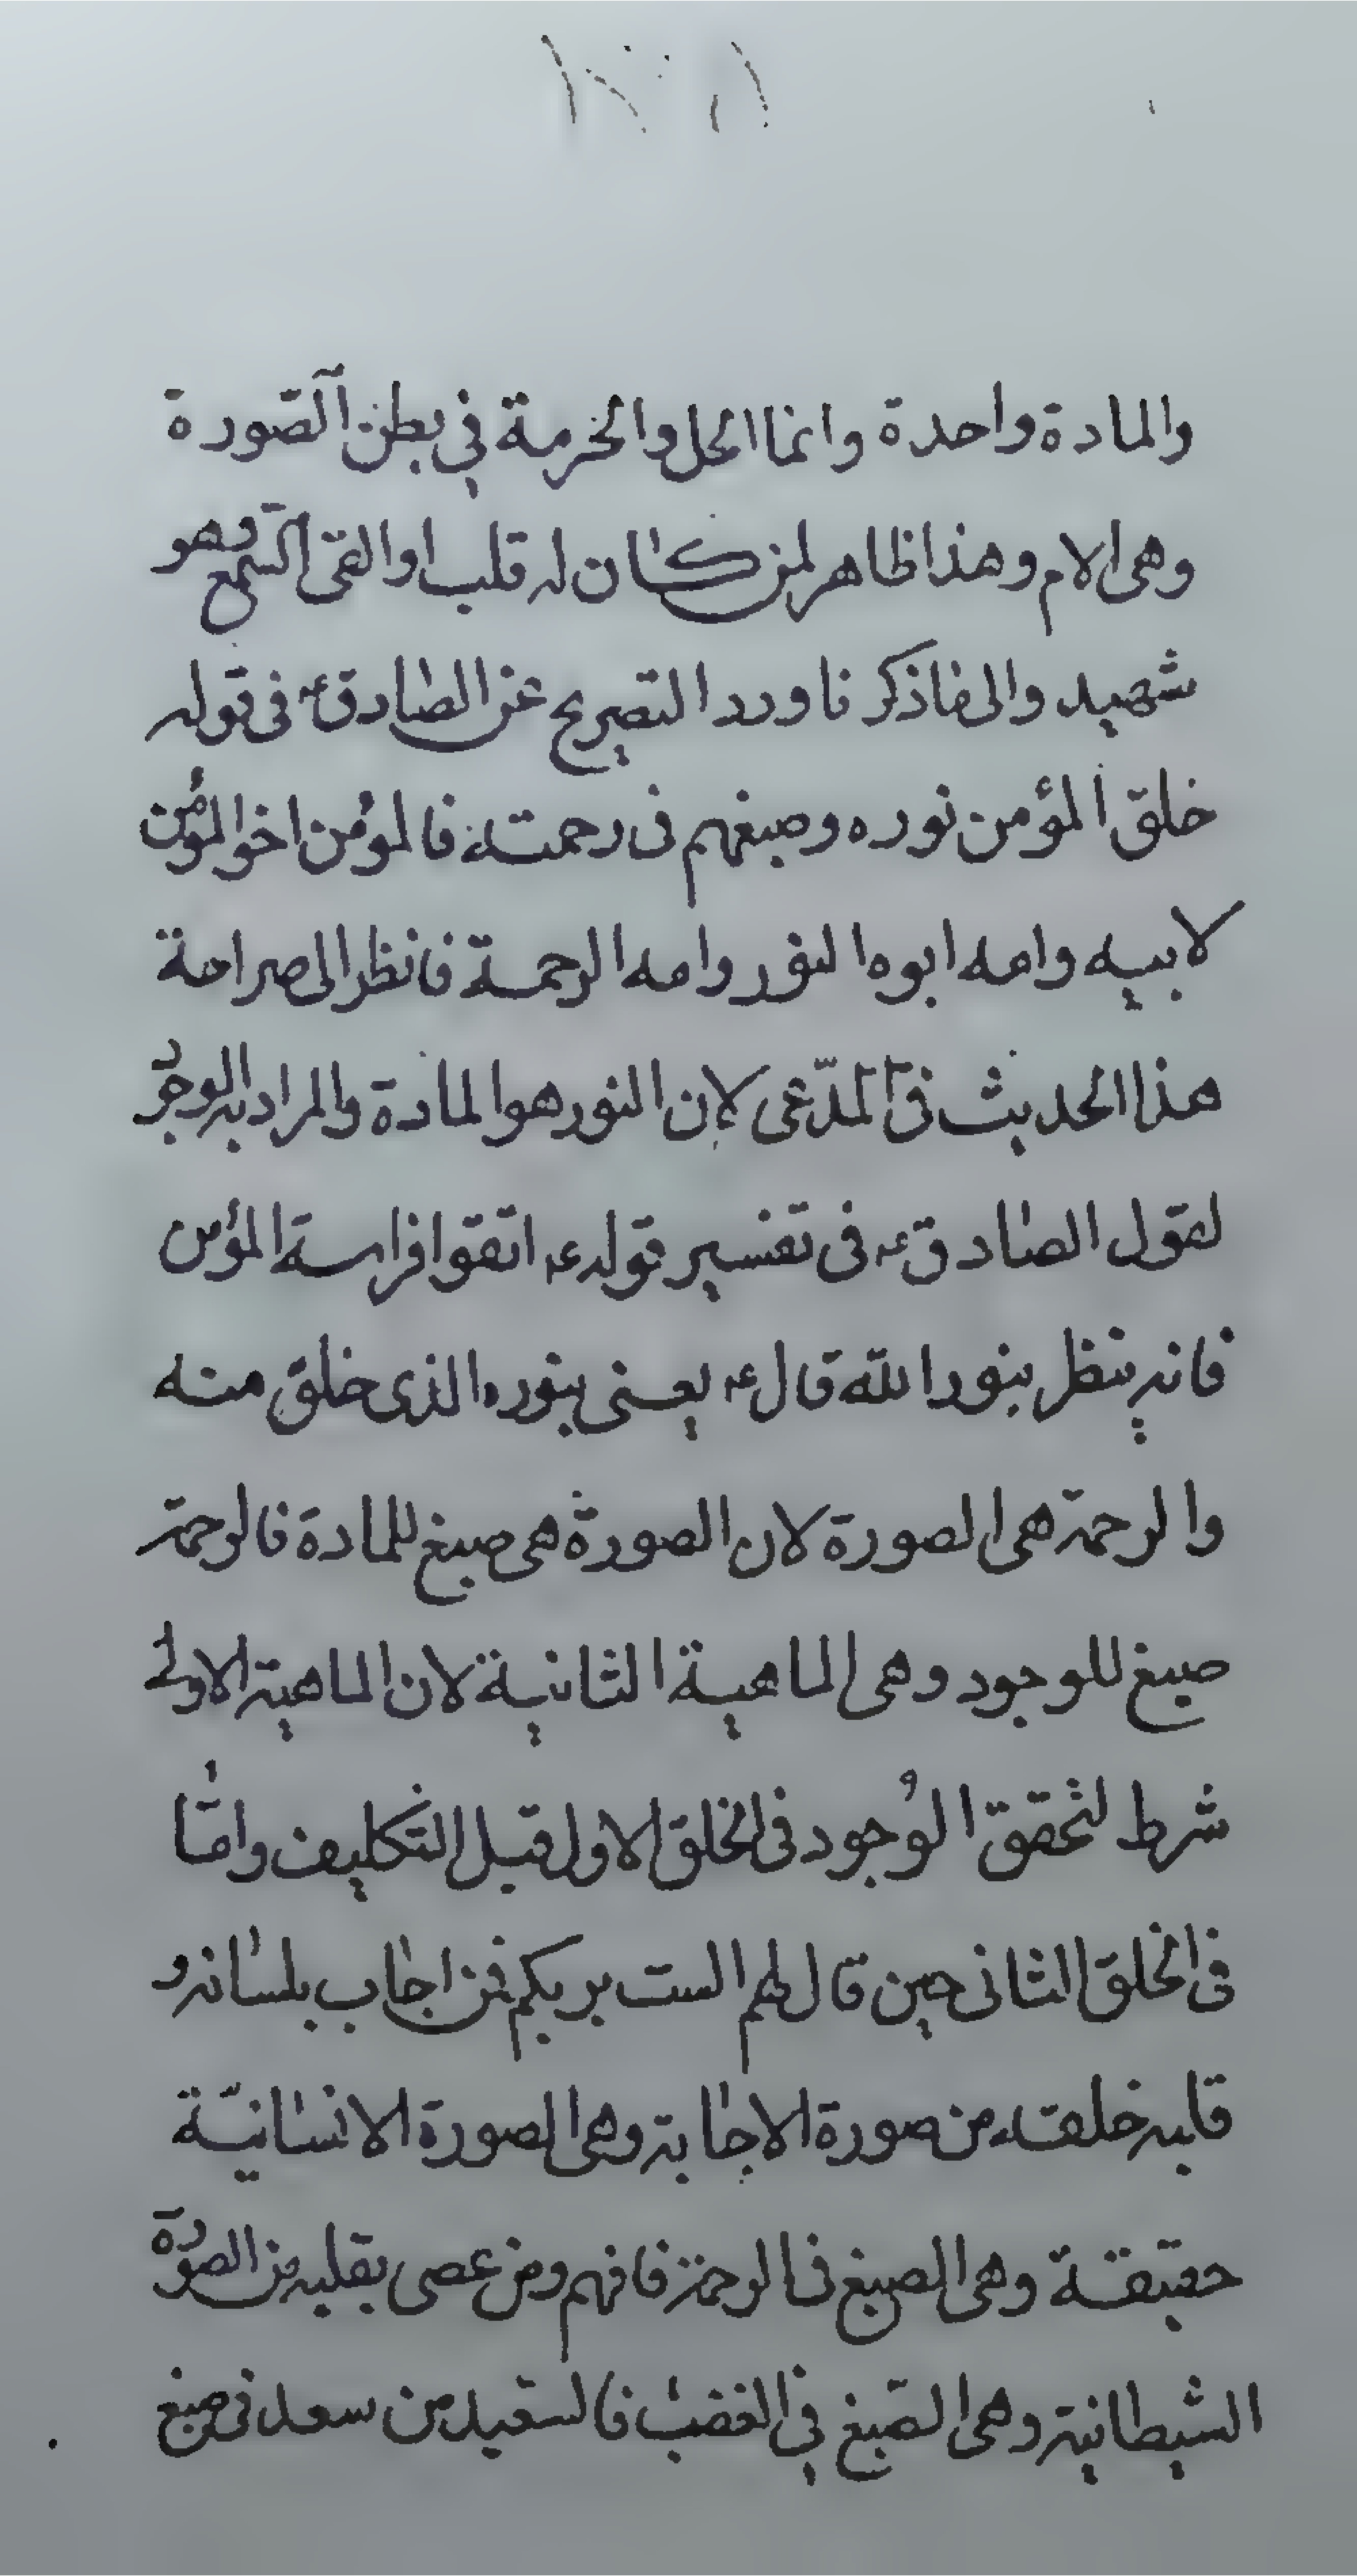 والمادة واحدة وانما الحل والحرمة في بطن الصورة
وهى الام وهذا ظاهر لمن كان له قلب او القى السمع وهو
شهيد والى ما ذكرنا ورد التصريح عن الصادق ع فى قوله
خلق المؤمن نوره وصبغهم فى رحمته فالمؤمن اخو المؤمن
لابيه وامه ابوه النور وامه الرحمة فانظر الى صراحة
هذا الحديث فى المدّعى لان النور هو المادة والمراد به الوجود
لقول الصادق ع فى تفسير قوله ع اتقوا فراسة المؤمن
فانه ينظر بنور الله قال ع يعنى بنوره الذى خلق منه
والرحمة هى الصورة لان الصورة هى صبغ للمادة فالرحمة
صبغ للوجود وهى الماهية الثانية لان الماهية الاولى
شرط لتحقق الوُجود فى الخلق الاول قبل التكليف وامّا
فى الخلق الثانى حين قال لهم الست بربكم فمن اجاب بلسانه و
قلبه خلقه من صورة الاجابة وهى الصورة الانسانيّة
حقيقة وهى الصبغ فى الرحمة فافهم ومن عصى بقلبه من الصورة
الشيطانية وهى الصّبغ في الغضب فالسعيد من سعد فى صبغ